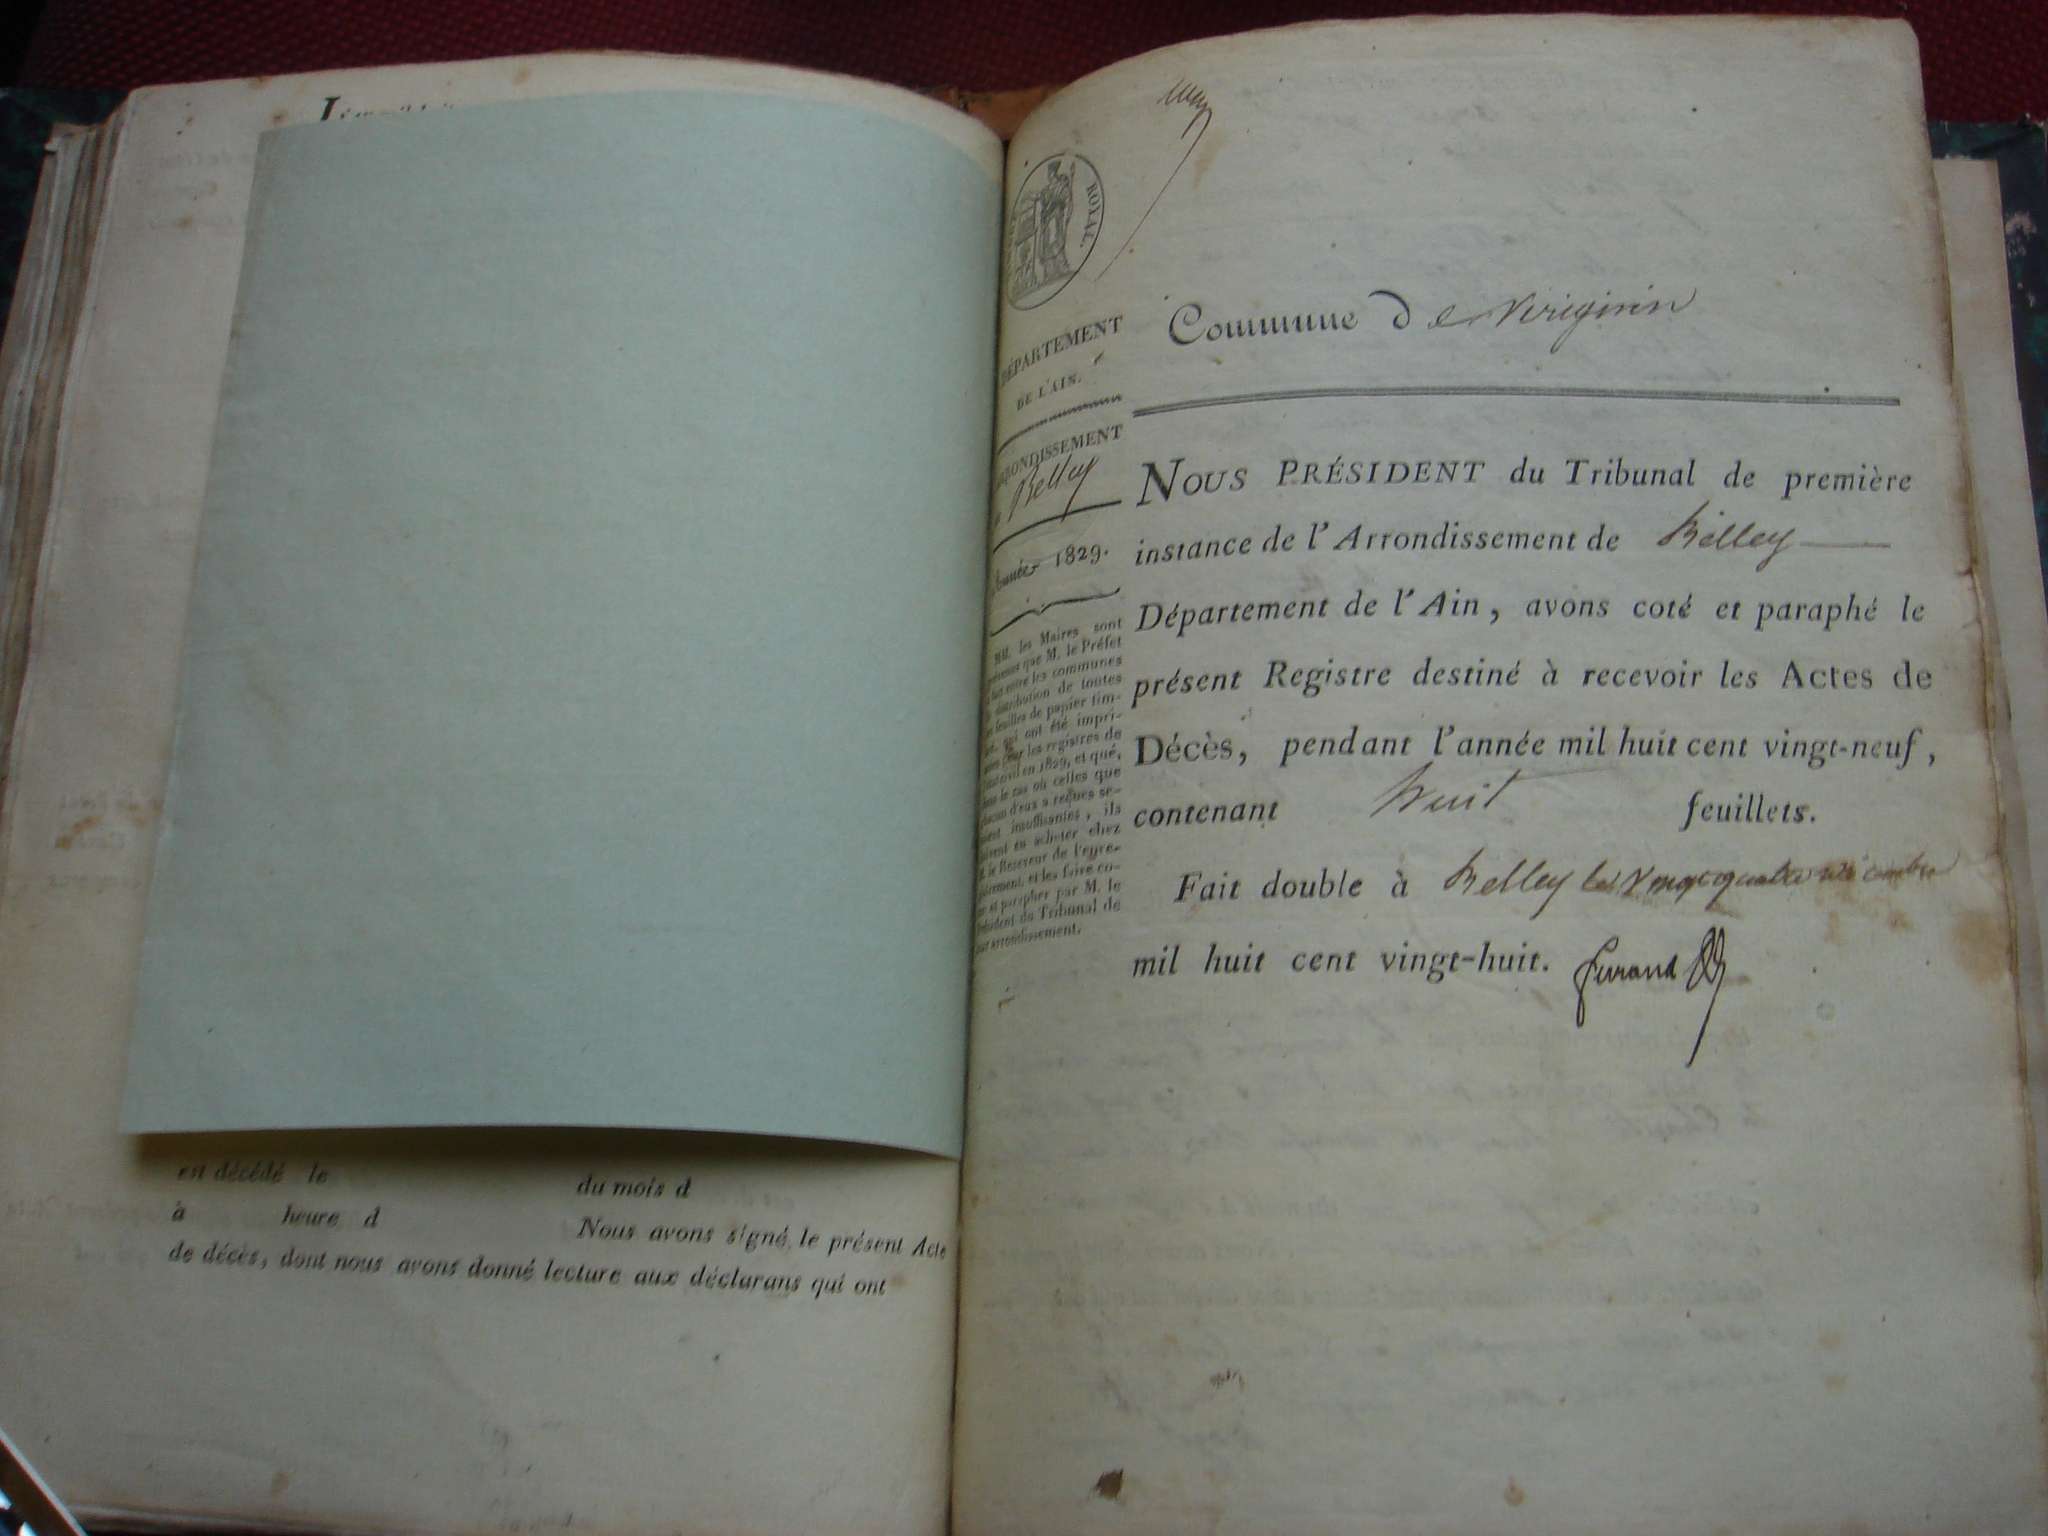 est décédé le du mois d
à heure d Nous avons signé le présent Acte
de décès, dont nous avons donné lecture aux déclarans qui ont
ROYAL.
DÉPARTEMENT
DE L'AIN.
ARRONDISSEMENT
Belley
Année 1829.
MM. les Maires sont
que M. le Préfet
entre les communes
distribution de toutes
feuilles de papier tim-
qui ont été impri-
pour les registres de
en 1829, et que,
dans le cas où celles que
chacun d'eux a reçues se-
insuffisantes, ils
en acheter chez
le Receveur de l'enre-
et les faire co-
et parapher par M. le
Président du Tribunal de
arrondissement.
Commune de Virignin
NOUS PRÉSIDENT du Tribunal de première
instance de l'Arrondissement de Belley
Département de l'Ain, avons coté et paraphé le
présent Registre destiné à recevoir les Actes de
Décès, pendant l'année mil huit cent vingt-neuf,
contenant huit feuillets.
Fait double à Belley le vingt quatre décembre
mil huit cent vingt-huit.